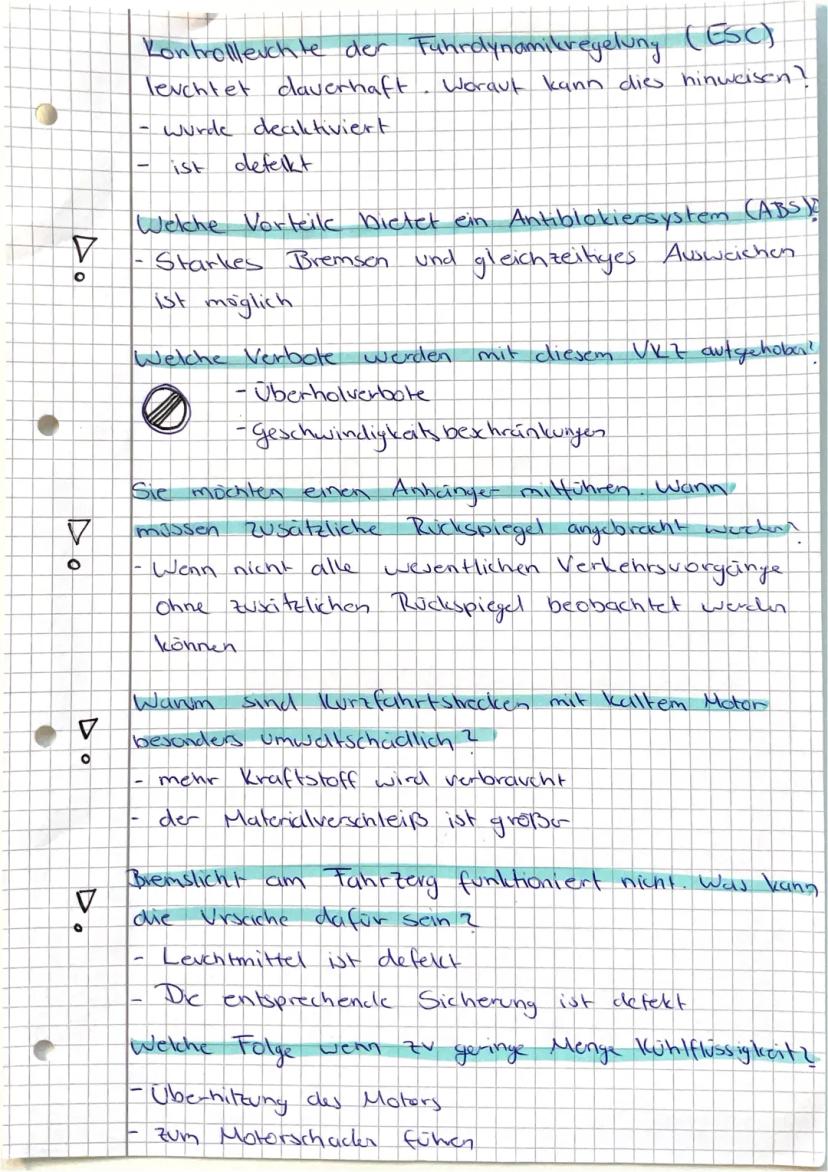 Kontrollleuchte der Fahrdynamikregelung (ESC)
leuchtet dauerhaft. Worauf kann dies hinweisen?
- wurde deaktiviert
- ist defekt
Welche Vorteile bietet ein Antiblokiersystem (ABS)?
- Starkes Bremsen und gleichzeitiges Ausweichen
ist möglich
Welche Verbote werden mit diesem VKZ aufgehoben?
- Überholverbote
- Geschwindigkeitsbeschränkungen
Sie möchten einen Anhänger mitführen. Wann
müssen zusätzliche Rückspiegel angebracht werden?
- Wenn nicht alle wesentlichen Verkehrsvorgänge
ohne zusätzlichen Rückspiegel beobachtet werden
können
Warum sind Kurzfahrtstrecken mit kaltem Motor
besonders umweltschädlich?
- mehr Kraftstoff wird verbraucht
- der Materialverschleiß ist größer
Bremslicht am Fahrzeug funktioniert nicht. Was kann
die Ursache dafür sein?
- Leuchtmittel ist defekt
- Die entsprechende Sicherung ist defekt
Welche Folge wenn zu geringe Menge Kühlflüssigkeit?
- Überhitzung des Motors
- zum Motorschaden führen